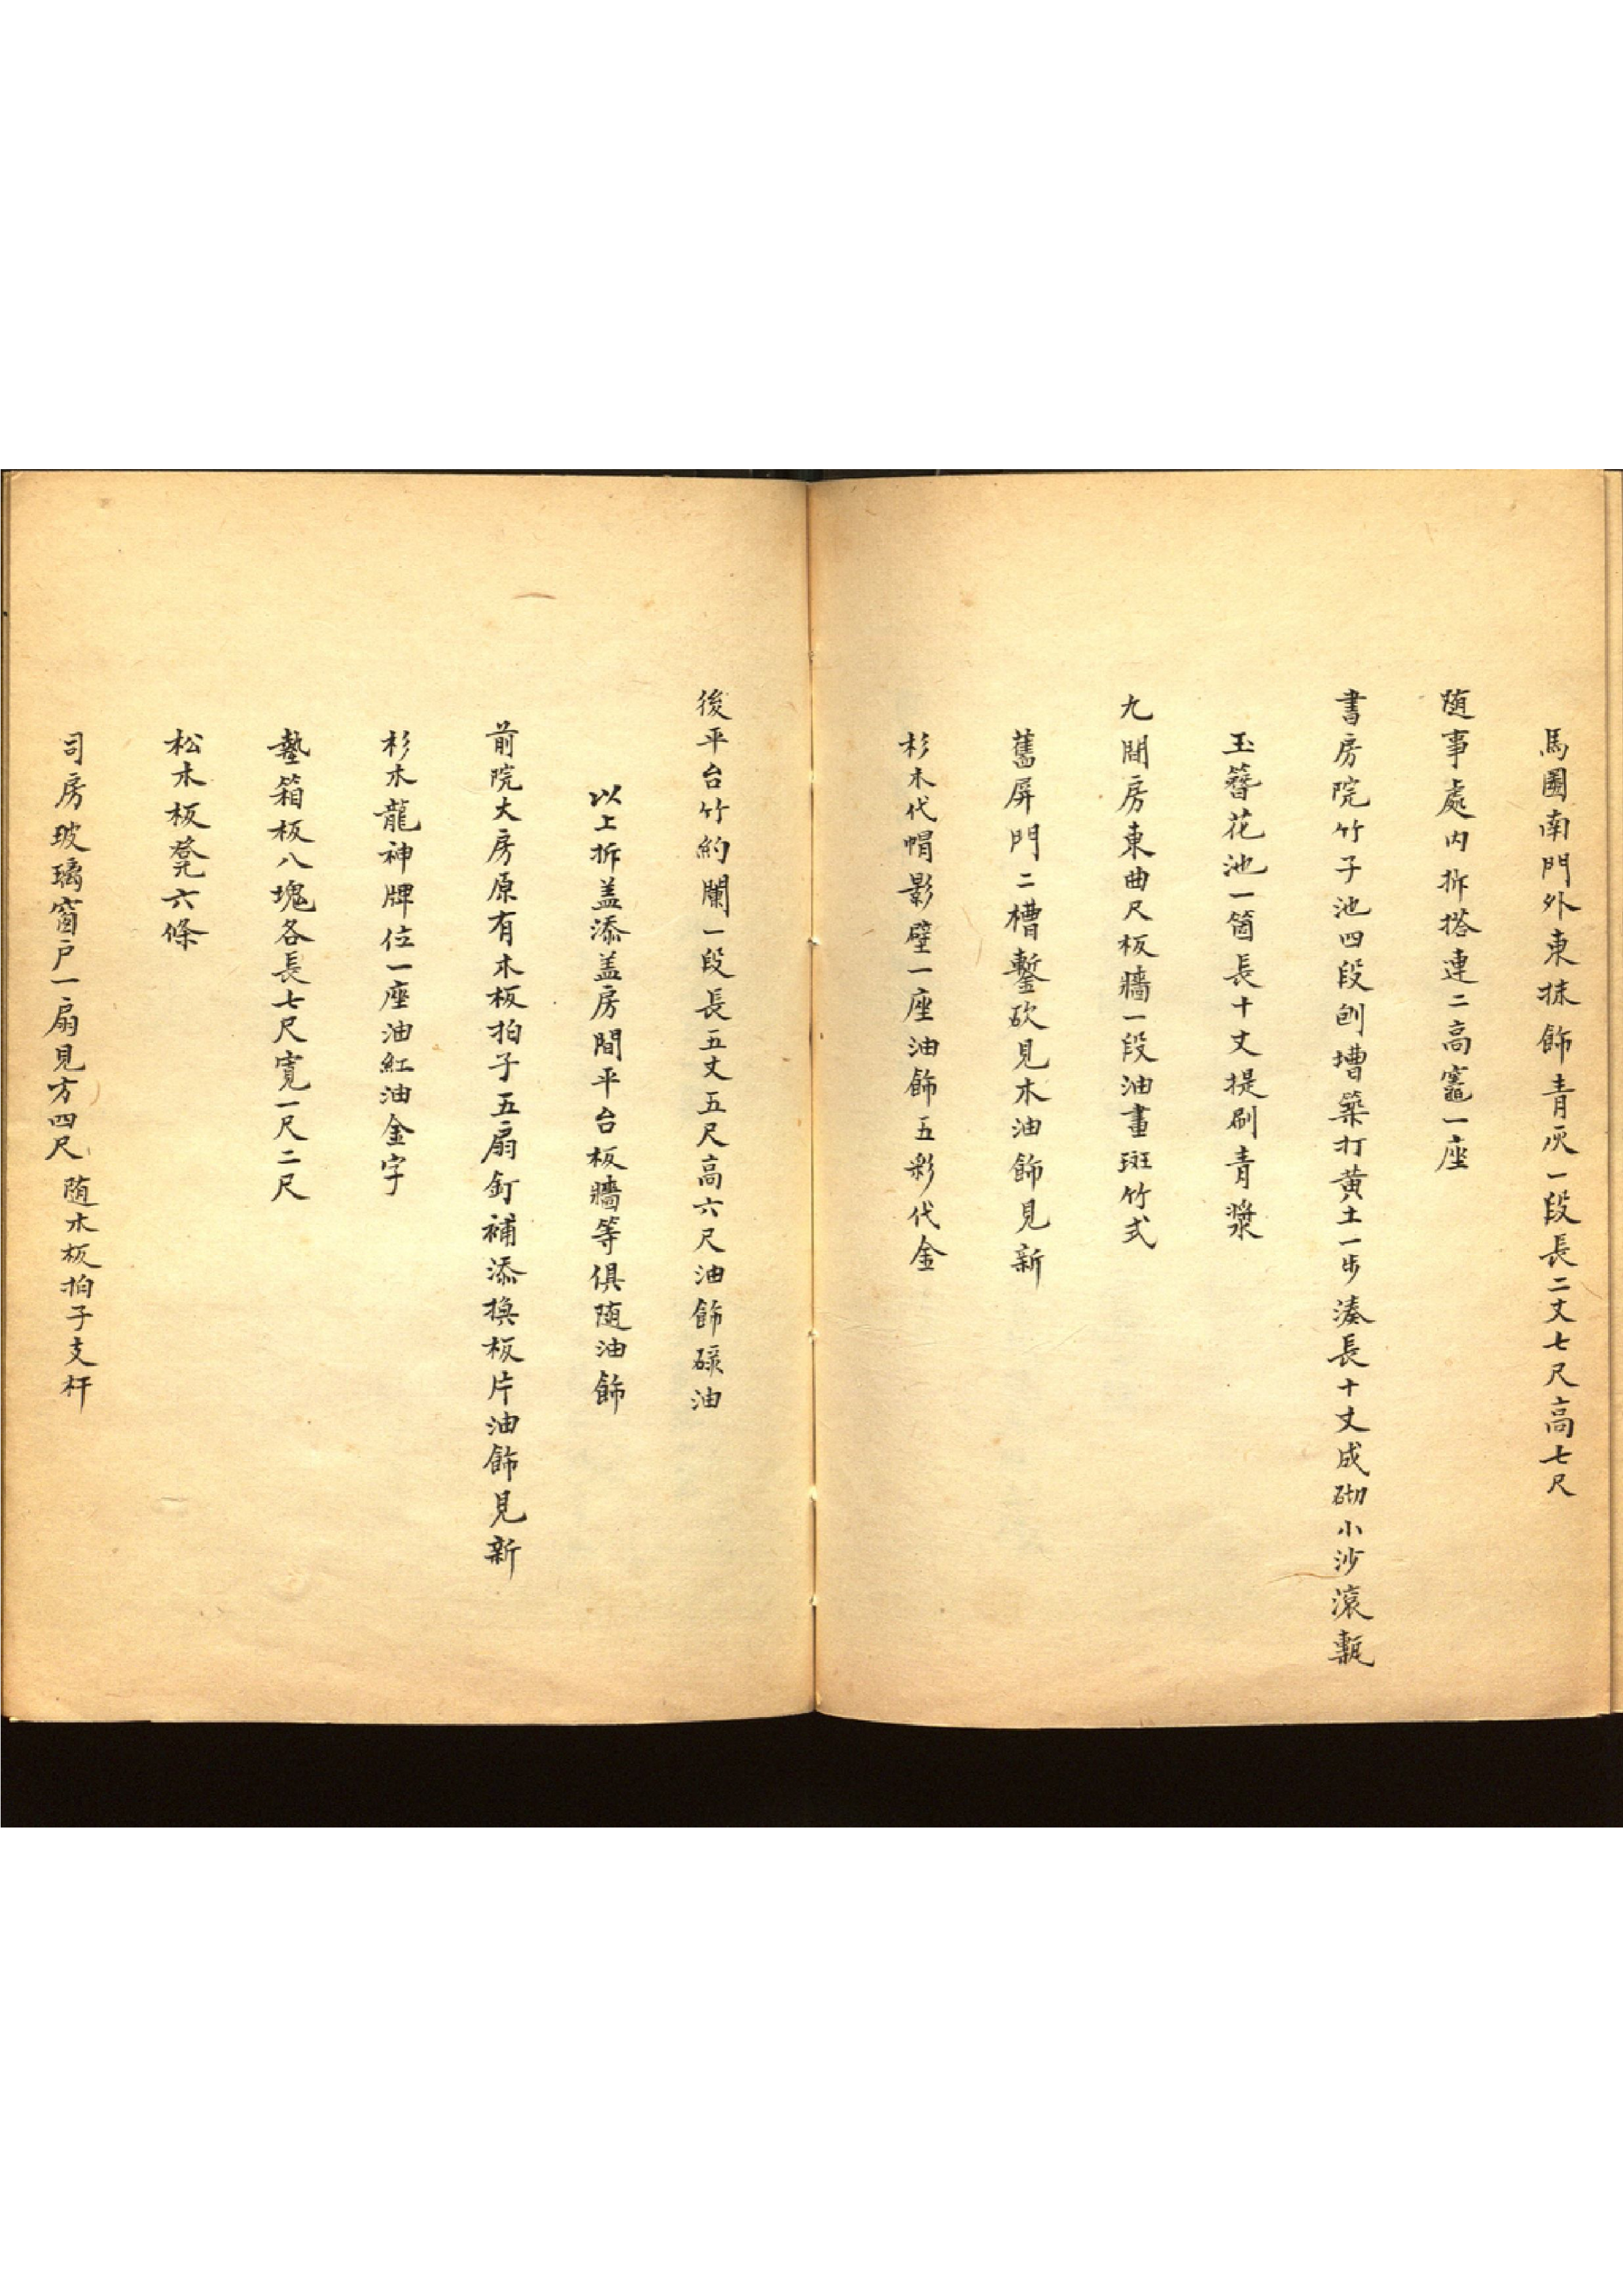 馬圈南門外東抹飾青灰一段長二丈七尺高七尺
随事處内拆搭連二高竈一座
書房院竹子池四段刨塘築打黄土一步湊長十丈成砌小沙滾甎
玉簪花池一箇長十丈提刷青漿
九間房東曲尺板牆一段油畫斑竹式
舊屏門二槽鏨砍見木油飾見新
杉木代帽影壁一座油飾五彩代金
後平台竹約闌一段長五丈五尺高六尺油飾碌油
以上拆盖添盖房間平台板牆等俱随油飾
前院大房原有木板拍子五扇釘補添換板片油飾見新
杉木龍神牌位一座油紅油金字
墊箱板八塊各長七尺寬一尺二尺
松木板凳六條
司房玻璃窗户一扇見方四尺 随木板拍子支杆